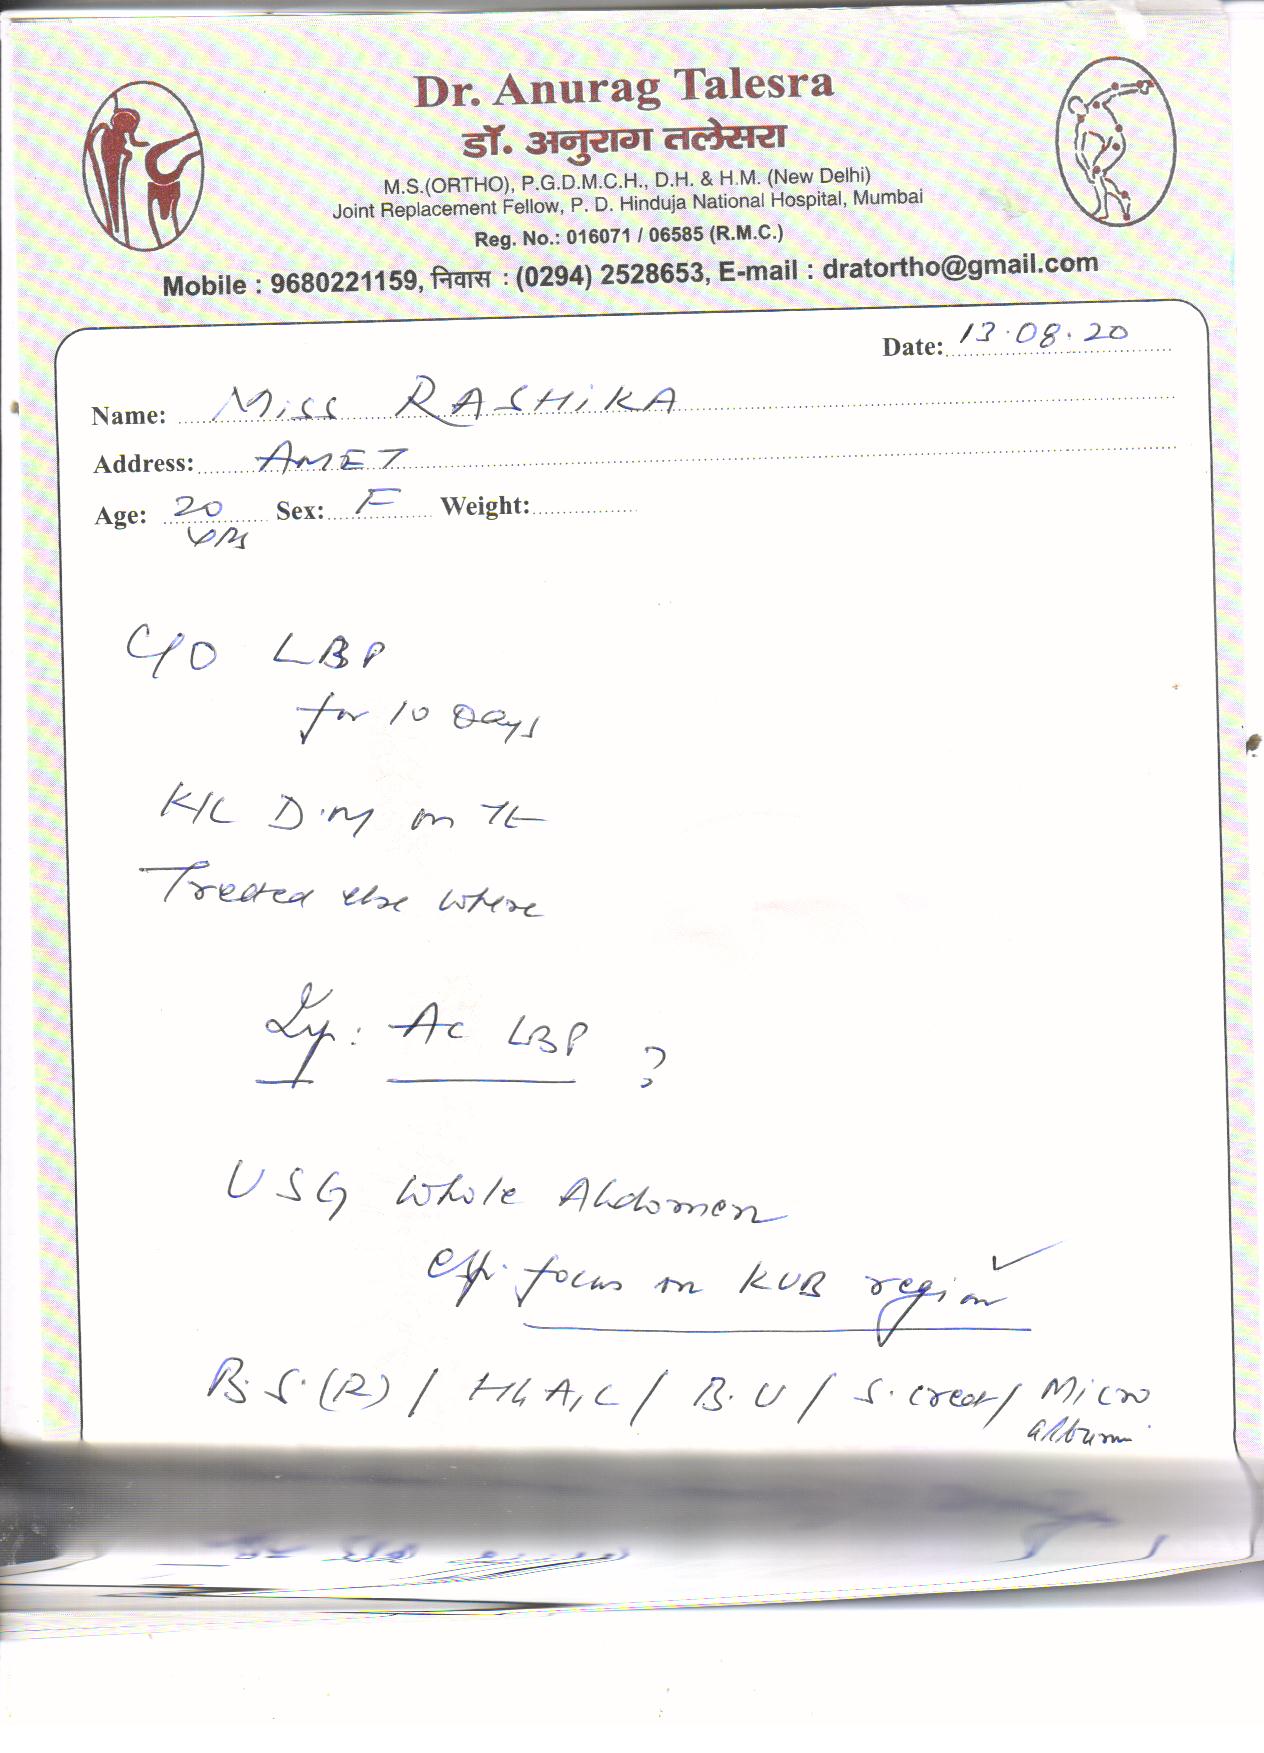 Dr. Anurag Talesra
डॉ. अनुराग तलेसरा
M.S.(ORTHO), P.G.D.M.C.H., D.H. & H.M. (New Delhi)
Joint Replacement Fellow, P. D. Hinduja National Hospital, Mumbai
Reg. No.: 016071 / 06585 (R.M.C.)
Mobile : 9680221159, निवास : (0294) 2528653, E-mail : dratortho@gmail.com
Date: 13.08.20
Name: Miss RASHiKA
Address: AMET
Age: 20 yrs Sex: F Weight:
C/O LBP
for 10 Days
K/C D.M on
Treated else where
Ac LBP ?
USG Whole Abdomen
esp. focus on KUB region ✓
B.S.(R) / Hb A1C / B.U / S. creat / Micro
album.